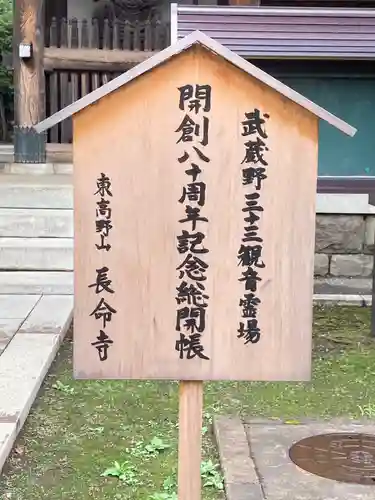 武蔵野三十三観音霊場
開創八十周年記念総開帳
東高野山 長命寺